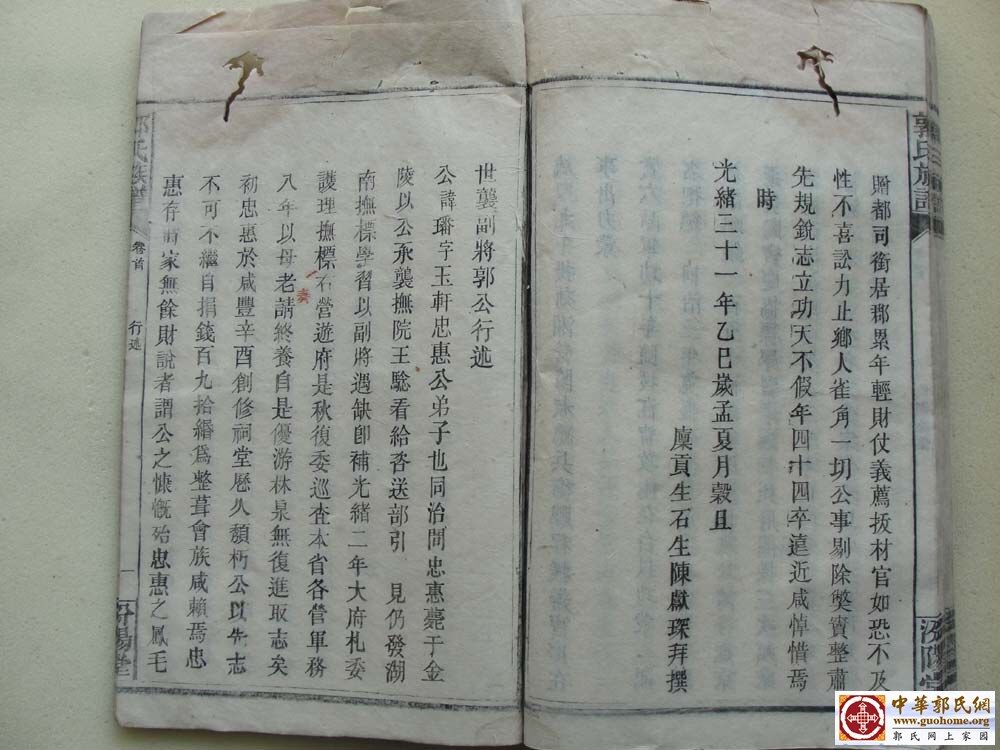 郭氏族譜
汾陽堂
贈都司銜居郡累年輕財仗義薦拔材官如恐不及
性不喜訟力止鄉人雀角一切公事剔除獘竇整肅
先規銳志立功天不假年四十四卒遠近咸悼惜焉
時
光緒三十一年乙巳歲孟夏月穀旦
廩貢生石生陳獻琛拜撰
世襲副將郭公行述
公諱璠字玉軒忠惠公弟子也同治間忠惠薨于金
陵以公承襲撫院王騐看給咨送部引 見仍發湖
南撫標學習以副將遇缺卽補光緒二年大府札委
護理撫標右營遊府是秋復委巡查本省各營軍務
八年以母老請終養自是優游林泉無復進取志矣
初忠惠於咸豐辛酉創修祠堂歷久頽朽公以先志
不可不繼自捐錢百九拾緡爲整葺會族咸賴焉忠
惠存時家無餘財說者謂公之慷慨殆忠惠之鳳毛
郭氏族譜
卷首
行述
一
汾陽堂
中華郭氏網
www.guohome.org
郭氏網上家園